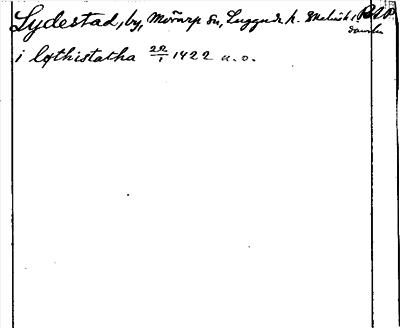 Lydestad, by, Mörarp sn, Luggude h. Malmöh l. BSP
samlin
i lythistatha 22/1 1422 u.o.